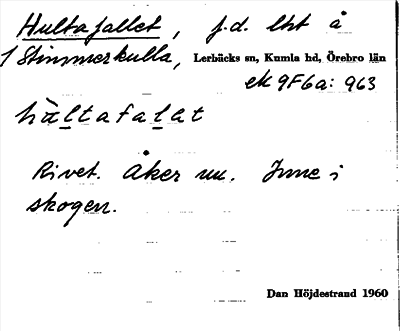 Hultafallet, f.d. lht å
1 Stimmerkulla, Lerbäcks sn, Kumla hd, Örebro län
ek 9F6a: 963
hùltafalat
Rivet. Åker nu. Inne i
skogen.
Dan Höjdestrand 1960